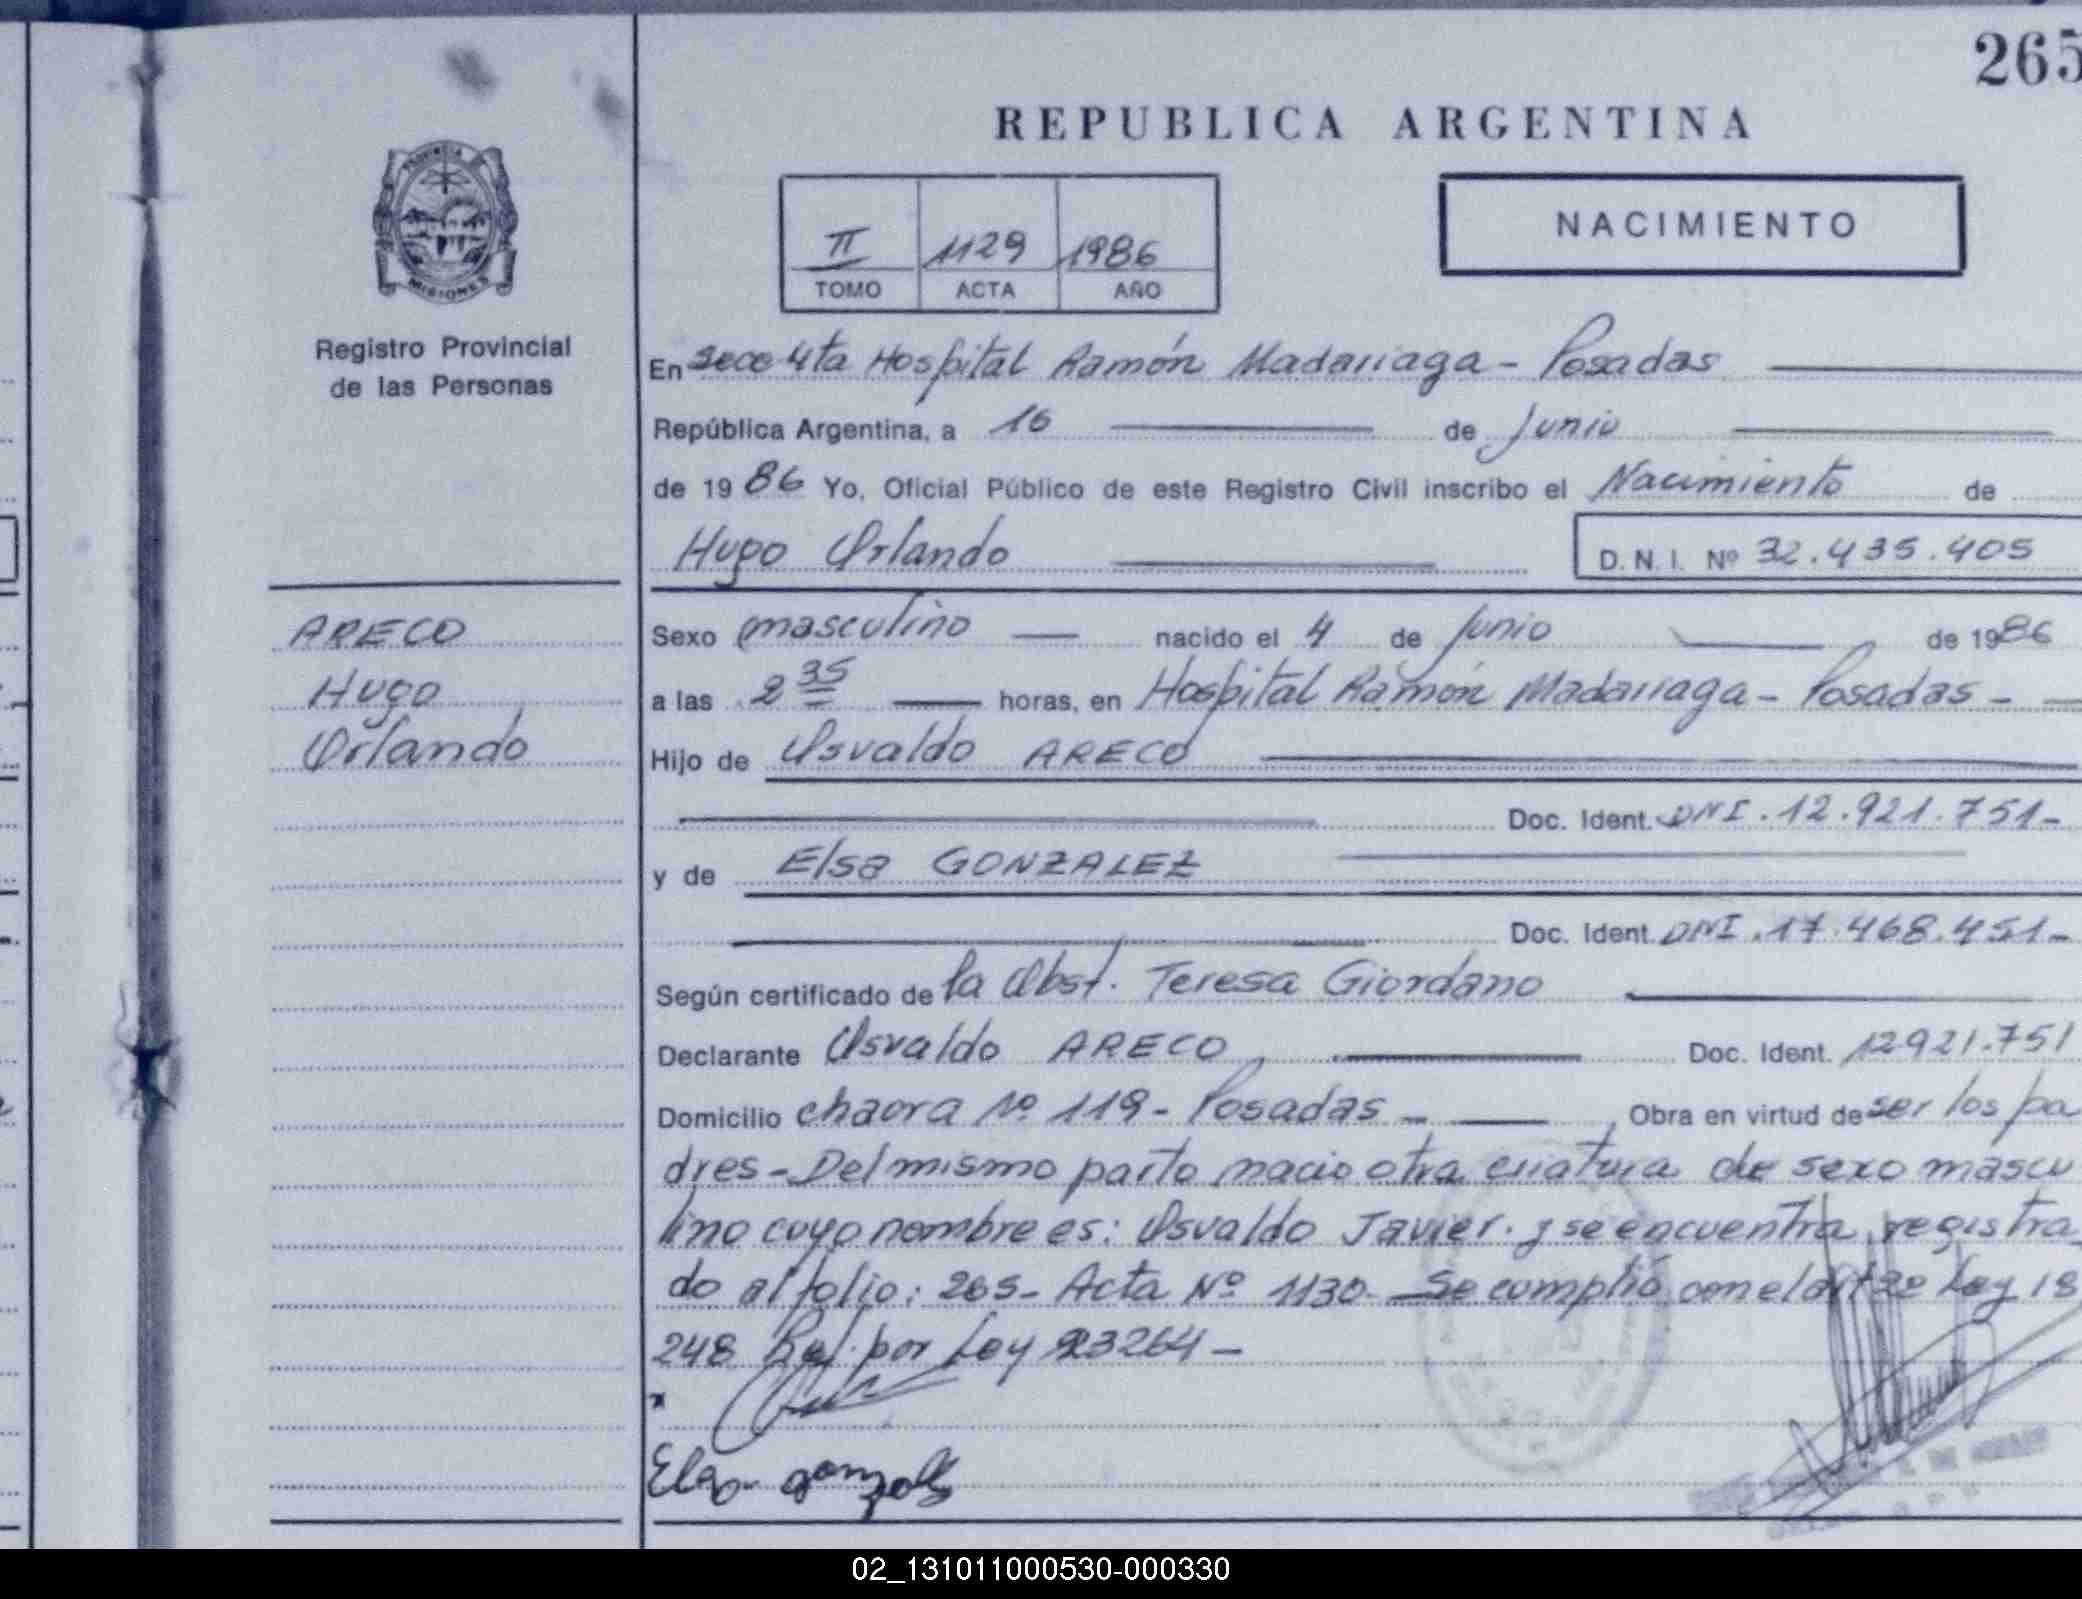 265
REPUBLICA ARGENTINA
PROVINCIA DE
MISIONES
Registro Provincial
de las Personas
II 1129 1986
TOMO ACTA AÑO
NACIMIENTO
En secc 4ta Hospital Ramón Madariaga - Posadas
República Argentina, a 16 de Junio
de 1986 Yo, Oficial Público de este Registro Civil inscribo el Nacimiento de
Hugo Orlando D.N.I. Nº 32.435.405
ARECO
Hugo
Orlando
Sexo masculino nacido el 4 de Junio de 1986
a las 2 35 horas, en Hospital Ramón Madariaga - Posadas -
Hijo de Osvaldo ARECO
Doc. Ident. DNI. 12.921.751-
y de Elsa GONZALEZ
Doc. Ident. DNI. 17.468.451-
Según certificado de la Obst. Teresa Giordano
Declarante Osvaldo ARECO Doc. Ident. 12921.751
Domicilio chacra Nº 119 - Posadas - Obra en virtud de ser los pa
dres - Del mismo parto nacio otra criatura de sexo mascu
lino cuyo nombre es: Osvaldo Javier. y se encuentra registra
do al folio: 265 - Acta Nº 1130 - Se cumplió con el Ley 18
248 por Ley 23264 -
Elsa gonzales
02_131011000530-000330